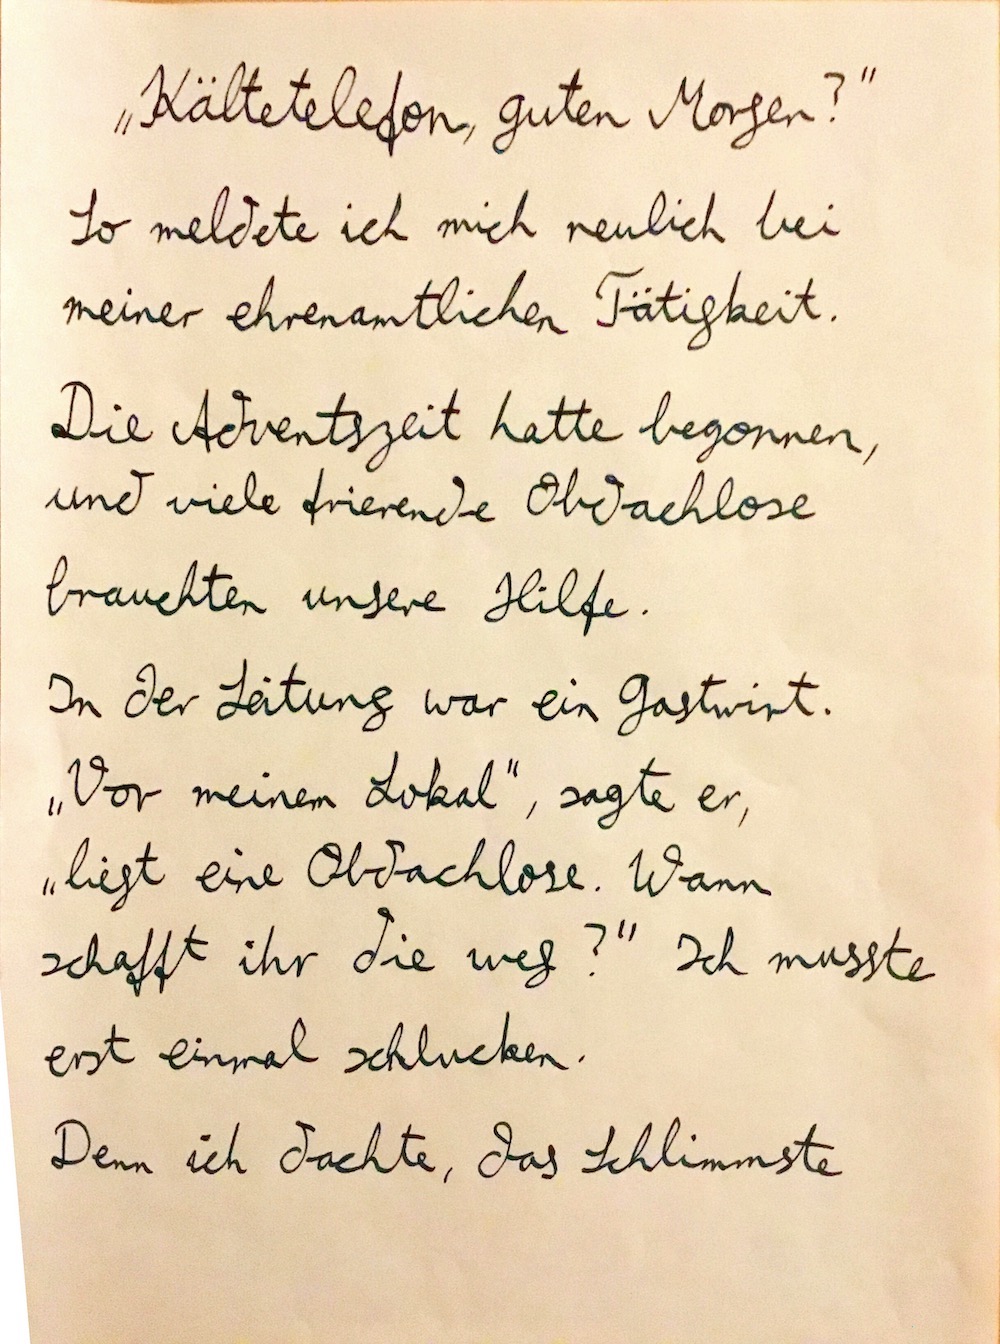 „Kältetelefon, guten Morgen?"
So meldete ich mich neulich bei
meiner ehrenamtlichen Tätigkeit.
Die Adventszeit hatte begonnen,
und viele frierende Obdachlose
brauchten unsere Hilfe.
In der Leitung war ein Gastwirt.
„Vor meinem Lokal", sagte er,
„liegt eine Obdachlose. Wann
schafft ihr die weg?" Ich musste
erst einmal schlucken.
Denn ich dachte, das Schlimmste